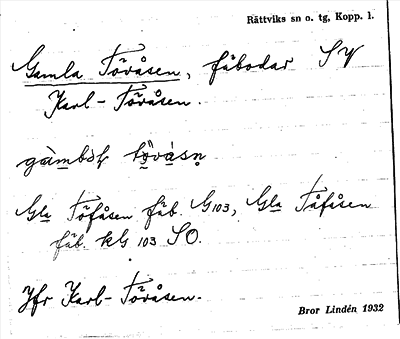 Rättviks sn o. tg, Kopp. l.
Gamla Töråsen, fäbodar SV
Karl-Töråsen.
Gla Töfåsen fäb. G103, Gla Tåfåsen
fäb. kG 103 SO.
Jfr Karl-Töråsen.
Bror Lindén 1932